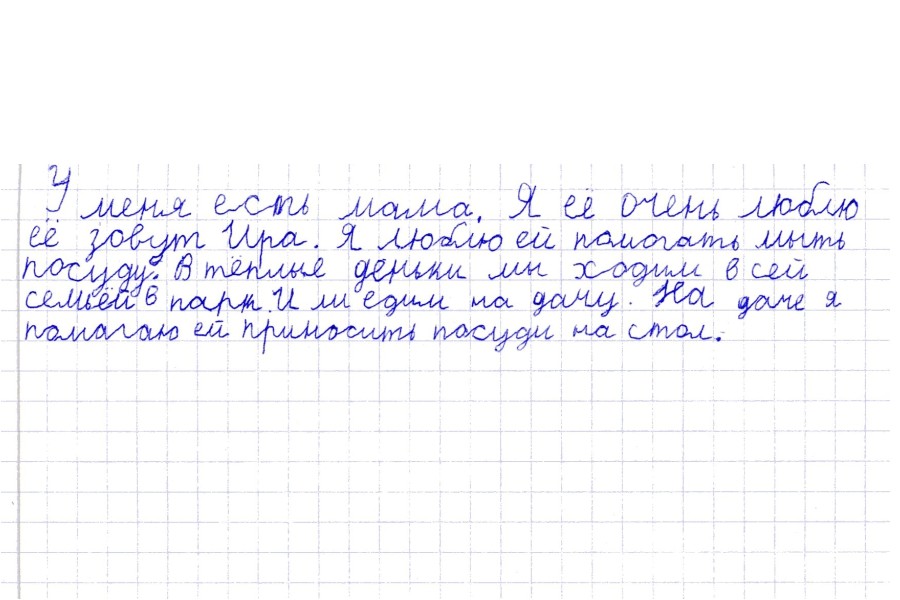 У меня есть мама. Я её очень люблю
её зовут Ира. Я люблю ей помогать мыть
посуду. В тёплые деньки мы ходим всей
семьёй в парк. И ли едим на дачу. На даче я
помагаю ей приносить посуди на стол.